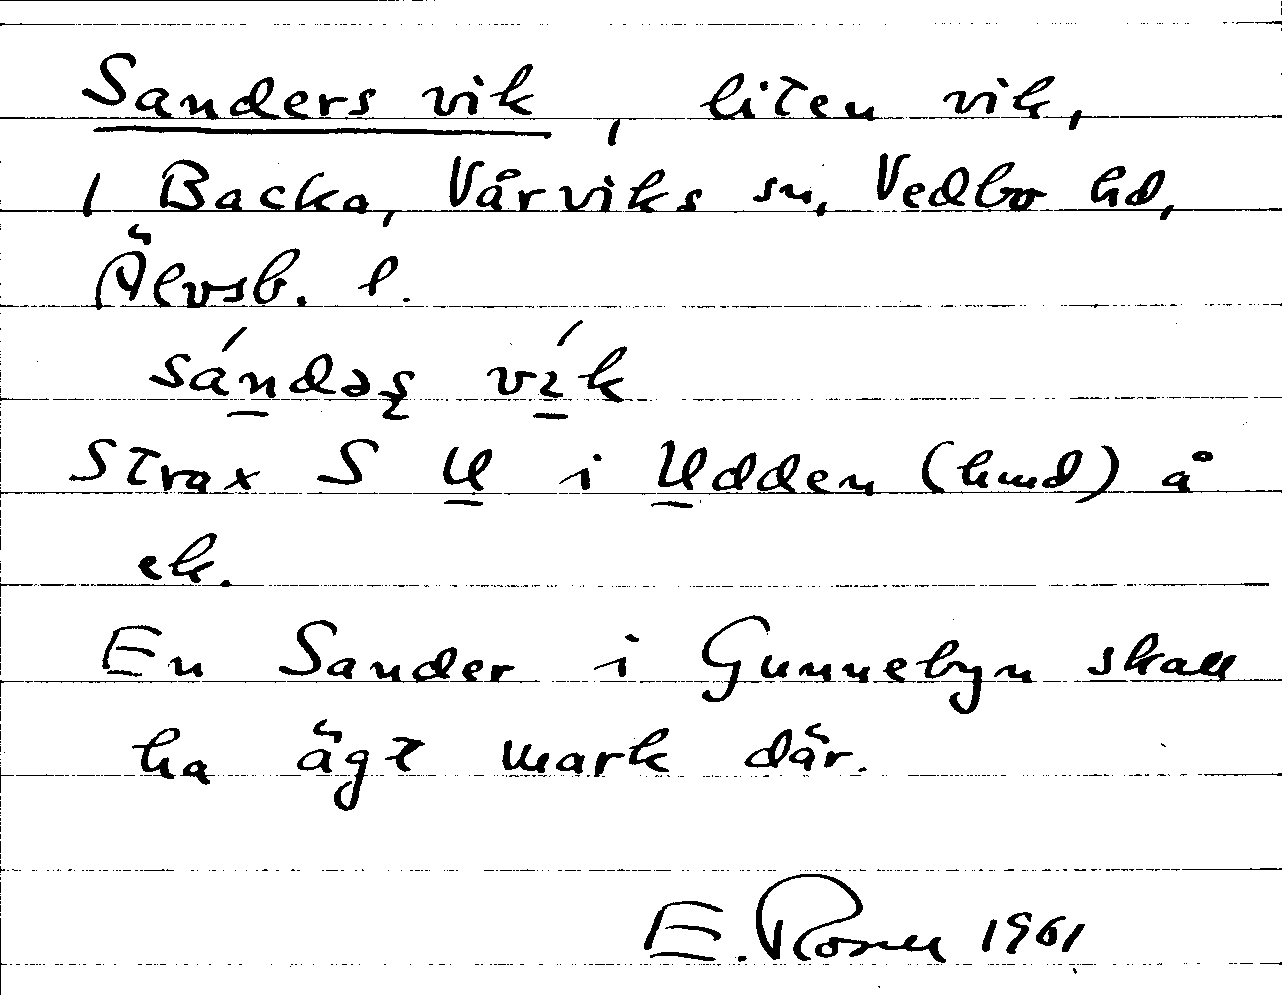 Sanders vik, liten vik,
1 Backa, Vårviks sn, Vedbo hd,
Älvsb. l.
sándəʂ vík
Strax S U i Udden (hmd) å
ek.
En Sander i Gunnebyn skall
ha ägt mark där.
E. Rosen 1961